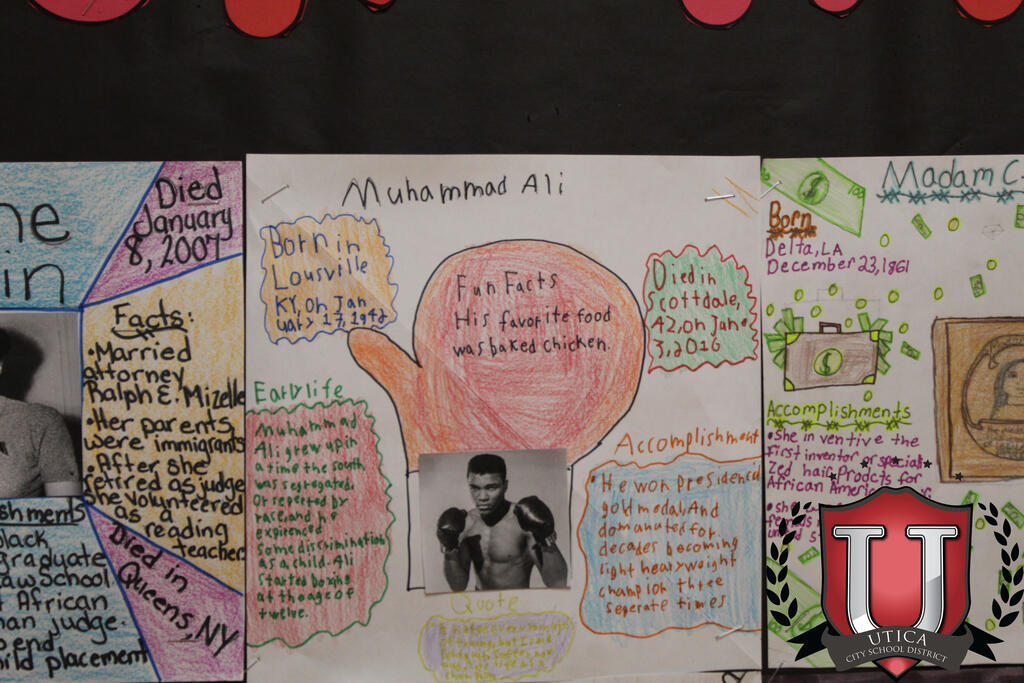 ne
in
Died
January
8, 2007
Facts:
• Married
attorney
Ralph E. Mizelle
• Her parents
were immigrants
• After she
retired as judge
she volunteered
as a
reading
teacher
shments
Black
graduate
aw School
African
an judge.
pend
hild placement
Died in
Queens, NY
Muhammad Ali
Born in
Lousville
KY, on Jan
uary 17, 1942
Fun Facts
His favorite food
was baked chicken.
Died in
Scottdale,
AZ, on Jun.
3, 2016
Early life
Muhammad
Ali grew up in
a time the south
was segregated.
race, and he
expienced
some discrimination
as a child. Ali
started boxing
at the age of
twelve.
Accomplishment
• He won Presidencial
gold medal, And
domanated for
decades becoming
light heavyweight
champion three
seperate times
Quote
Madam C
Born
Delta, LA
December 23, 1861
Accomplishments
• she inventive the
first inventor or special
zed hair Prodcts for
African America
UTICA
CITY SCHOOL DISTRICT
U
100